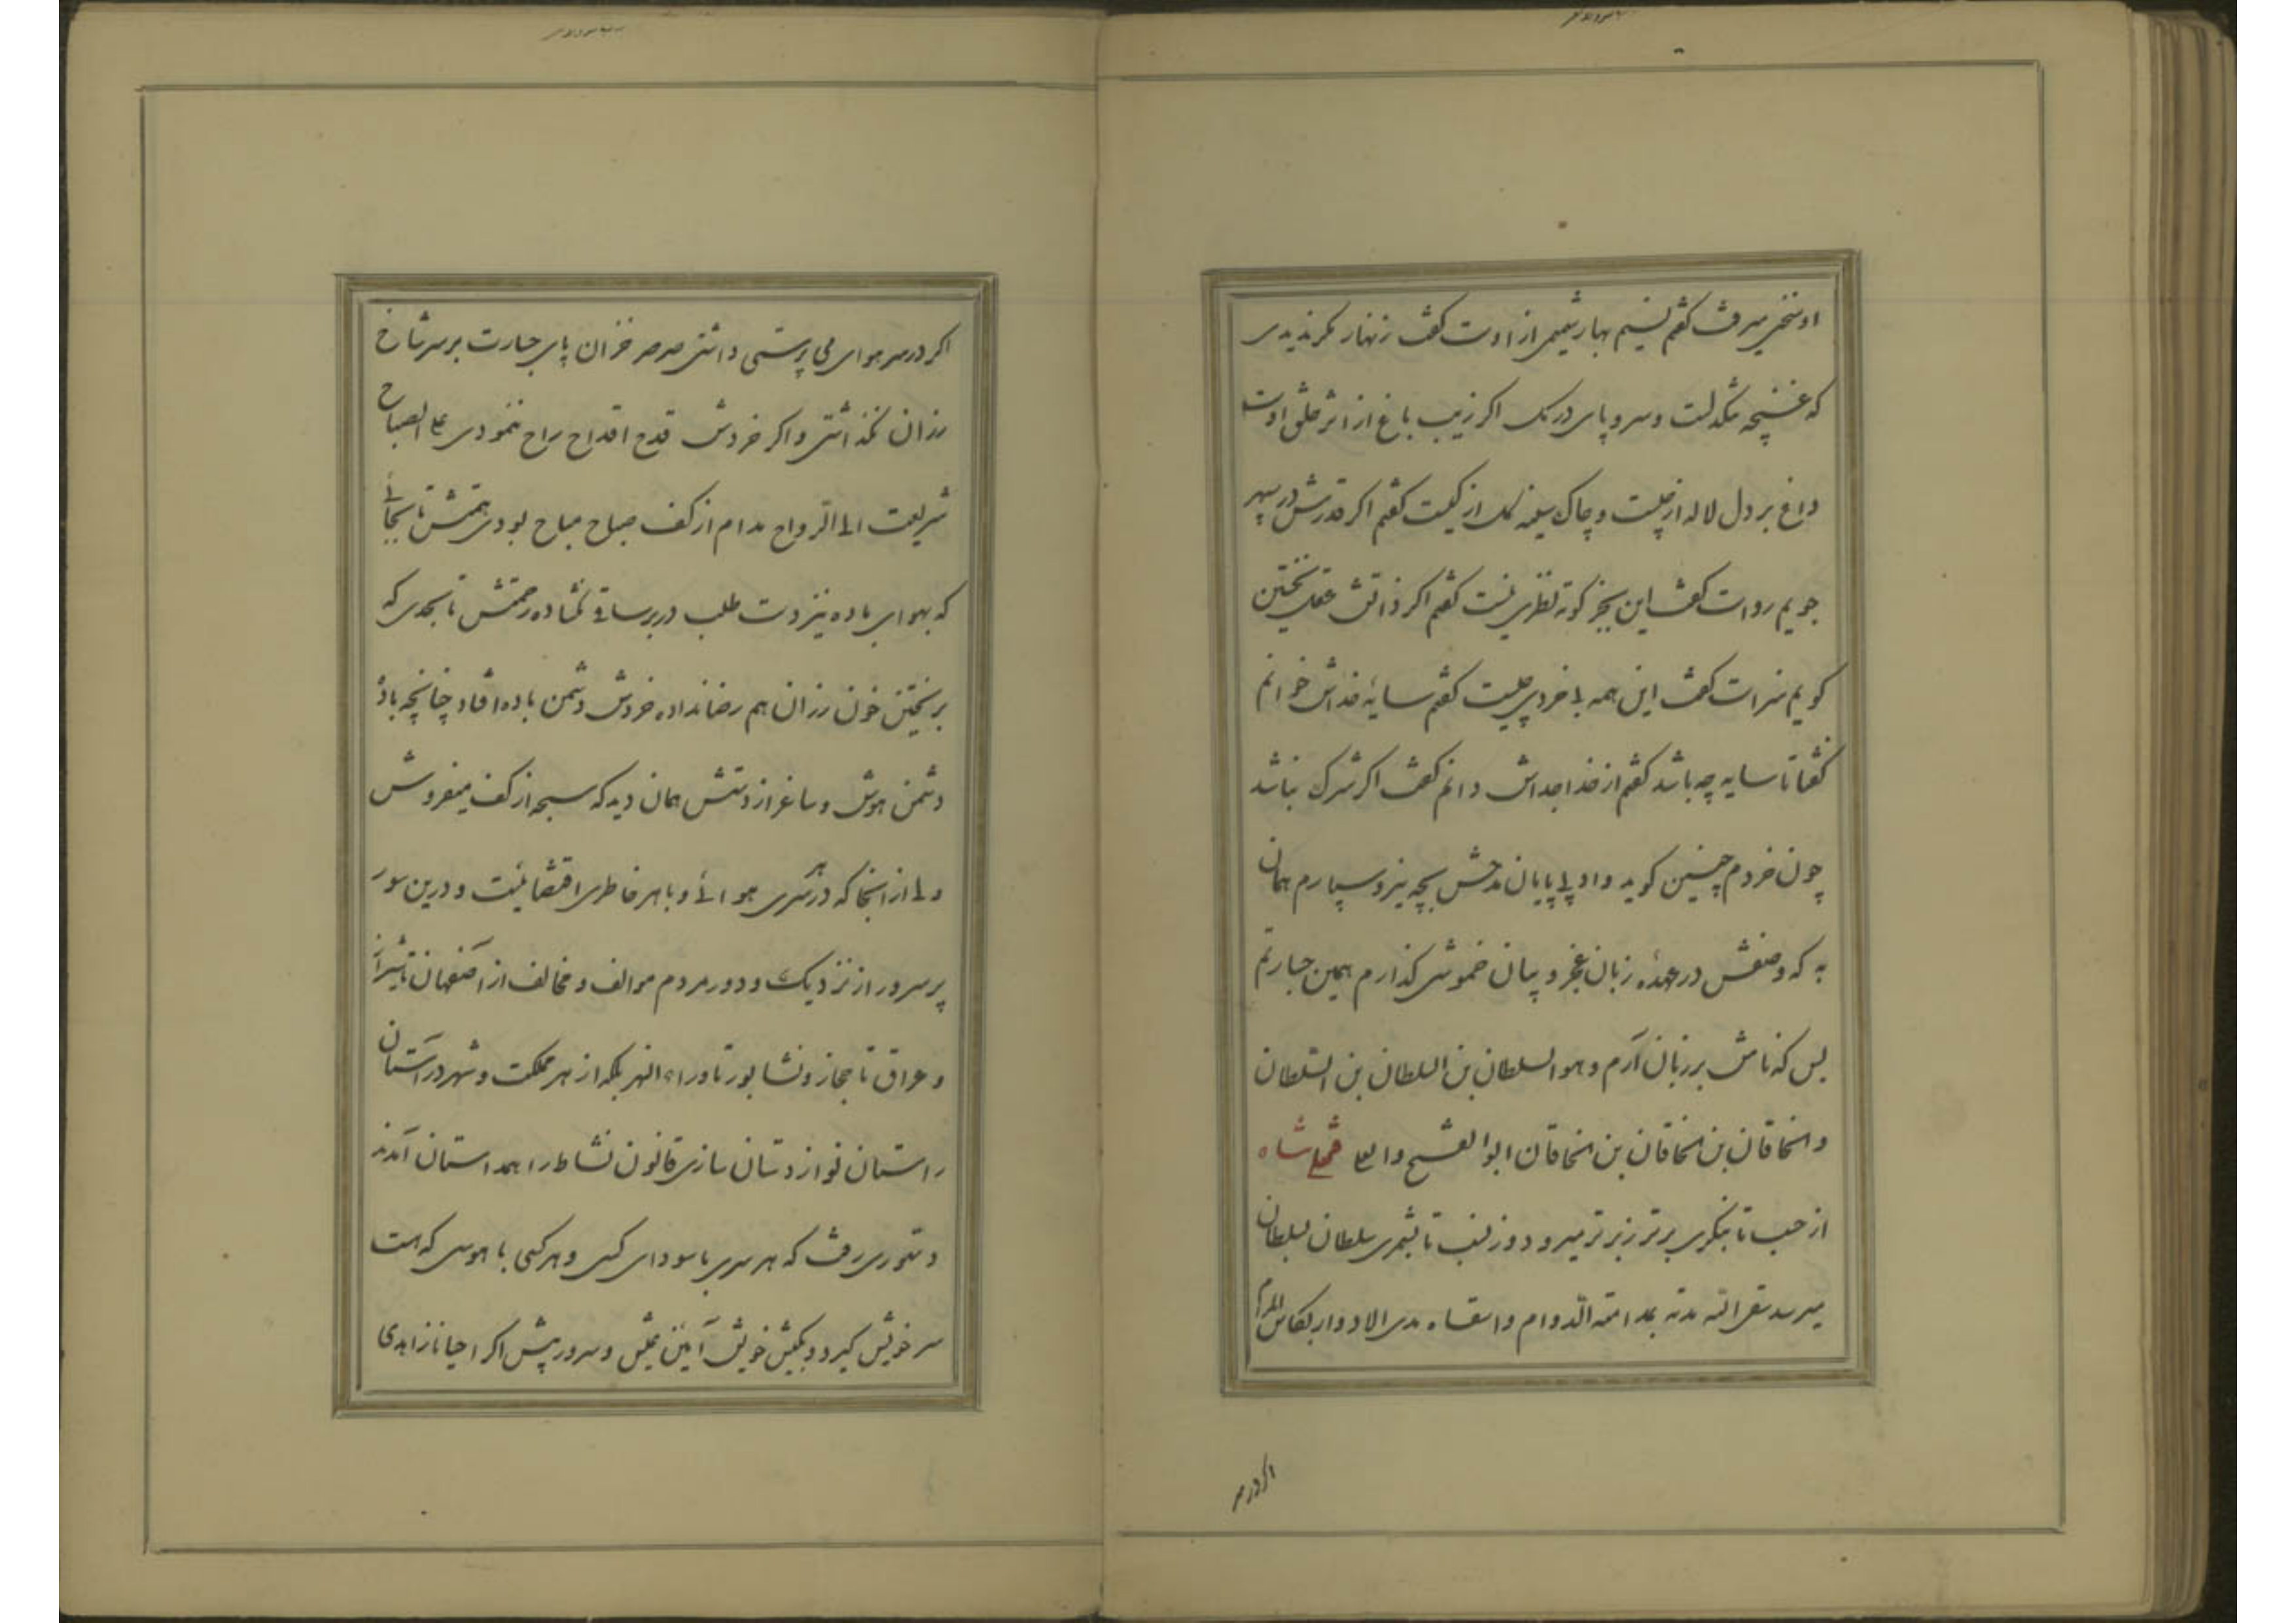 او سخن میرفت گفتم نسیم بهار شمیمی از اوست گفت زنهار مگر ندیدی
که غنچه تنگدلست و سرو پای در گل اگر زیب باغ از اثر خلق اوست
داغ بر دل لاله از چیست و چاک سینه گل از کیست گفتم اگر قدرش در سپهر
جویم رواست گفت این بجز کوته نظری نیست گفتم اگر ذاتش عقل نخستین
گویم سزاست گفت این همه بی خردی چیست گفتم سایه خداش خوانم
گفتا تا سایه چه باشد گفتم از خدا جداش دانم گفت اگر شرک نباشد
چون خردم چنین گوید وادی بی پایان مدحش بچه نیرو سپارم همان
به که وصفش در عهده زبان عجز و بیان خموشی گذارم همین جسارتم
بس که نامش بر زبان آرم و هو السلطان بن السلطان بن السلطان
و الخاقان بن الخاقان بن الخاقان ابوالفتح فتحعلی شاه
از حسب تا بنگری برتر ز برتر میرود وز نسب تا بشمری سلطان بسلطان
میرسد مدته الدوام مدی الادوار بکاس المدام
اگر در سر
اگر در سر هوای می پرستی داشتی صرصر خزان پای جسارت بر سر شاخ
رزان نگذاشتی و اگر خردش قدح اقداح راح ننمودی علی الصباح
شریعت الی الرواح مدام از کف صباح مباح بودی همتش تا بجائی
که بهوای باده نیز دست طلب در بر ساقی نگشاده رحمتش تا بحدی که
بریختن خون رزان هم رضا نداده خردش دشمن باده افتاد چنانچه باده
دشمن هوش و ساغر از دستش همان دید که سبحه از کف میفروش
ولی از آنجا که در هر سری هوائی و با هر خاطری اقتضائیست و درین سور
پر سرور از نزدیک و دور مردم موالف و مخالف از اصفهان تا شیراز
و عراق تا حجاز و نشابور تا ورای النهر بلکه از هر مملکت و شهر در آستان
راستان نواز دستان سازی قانون نشاط را همداستان آمدند
دستوری رفت که هر سری با سودای کسی و هر کسی با هوسی که هست
سر خویش گیرد و بکیش خویش آئین عیش و سرور پیش اگر احیانا زاهدی